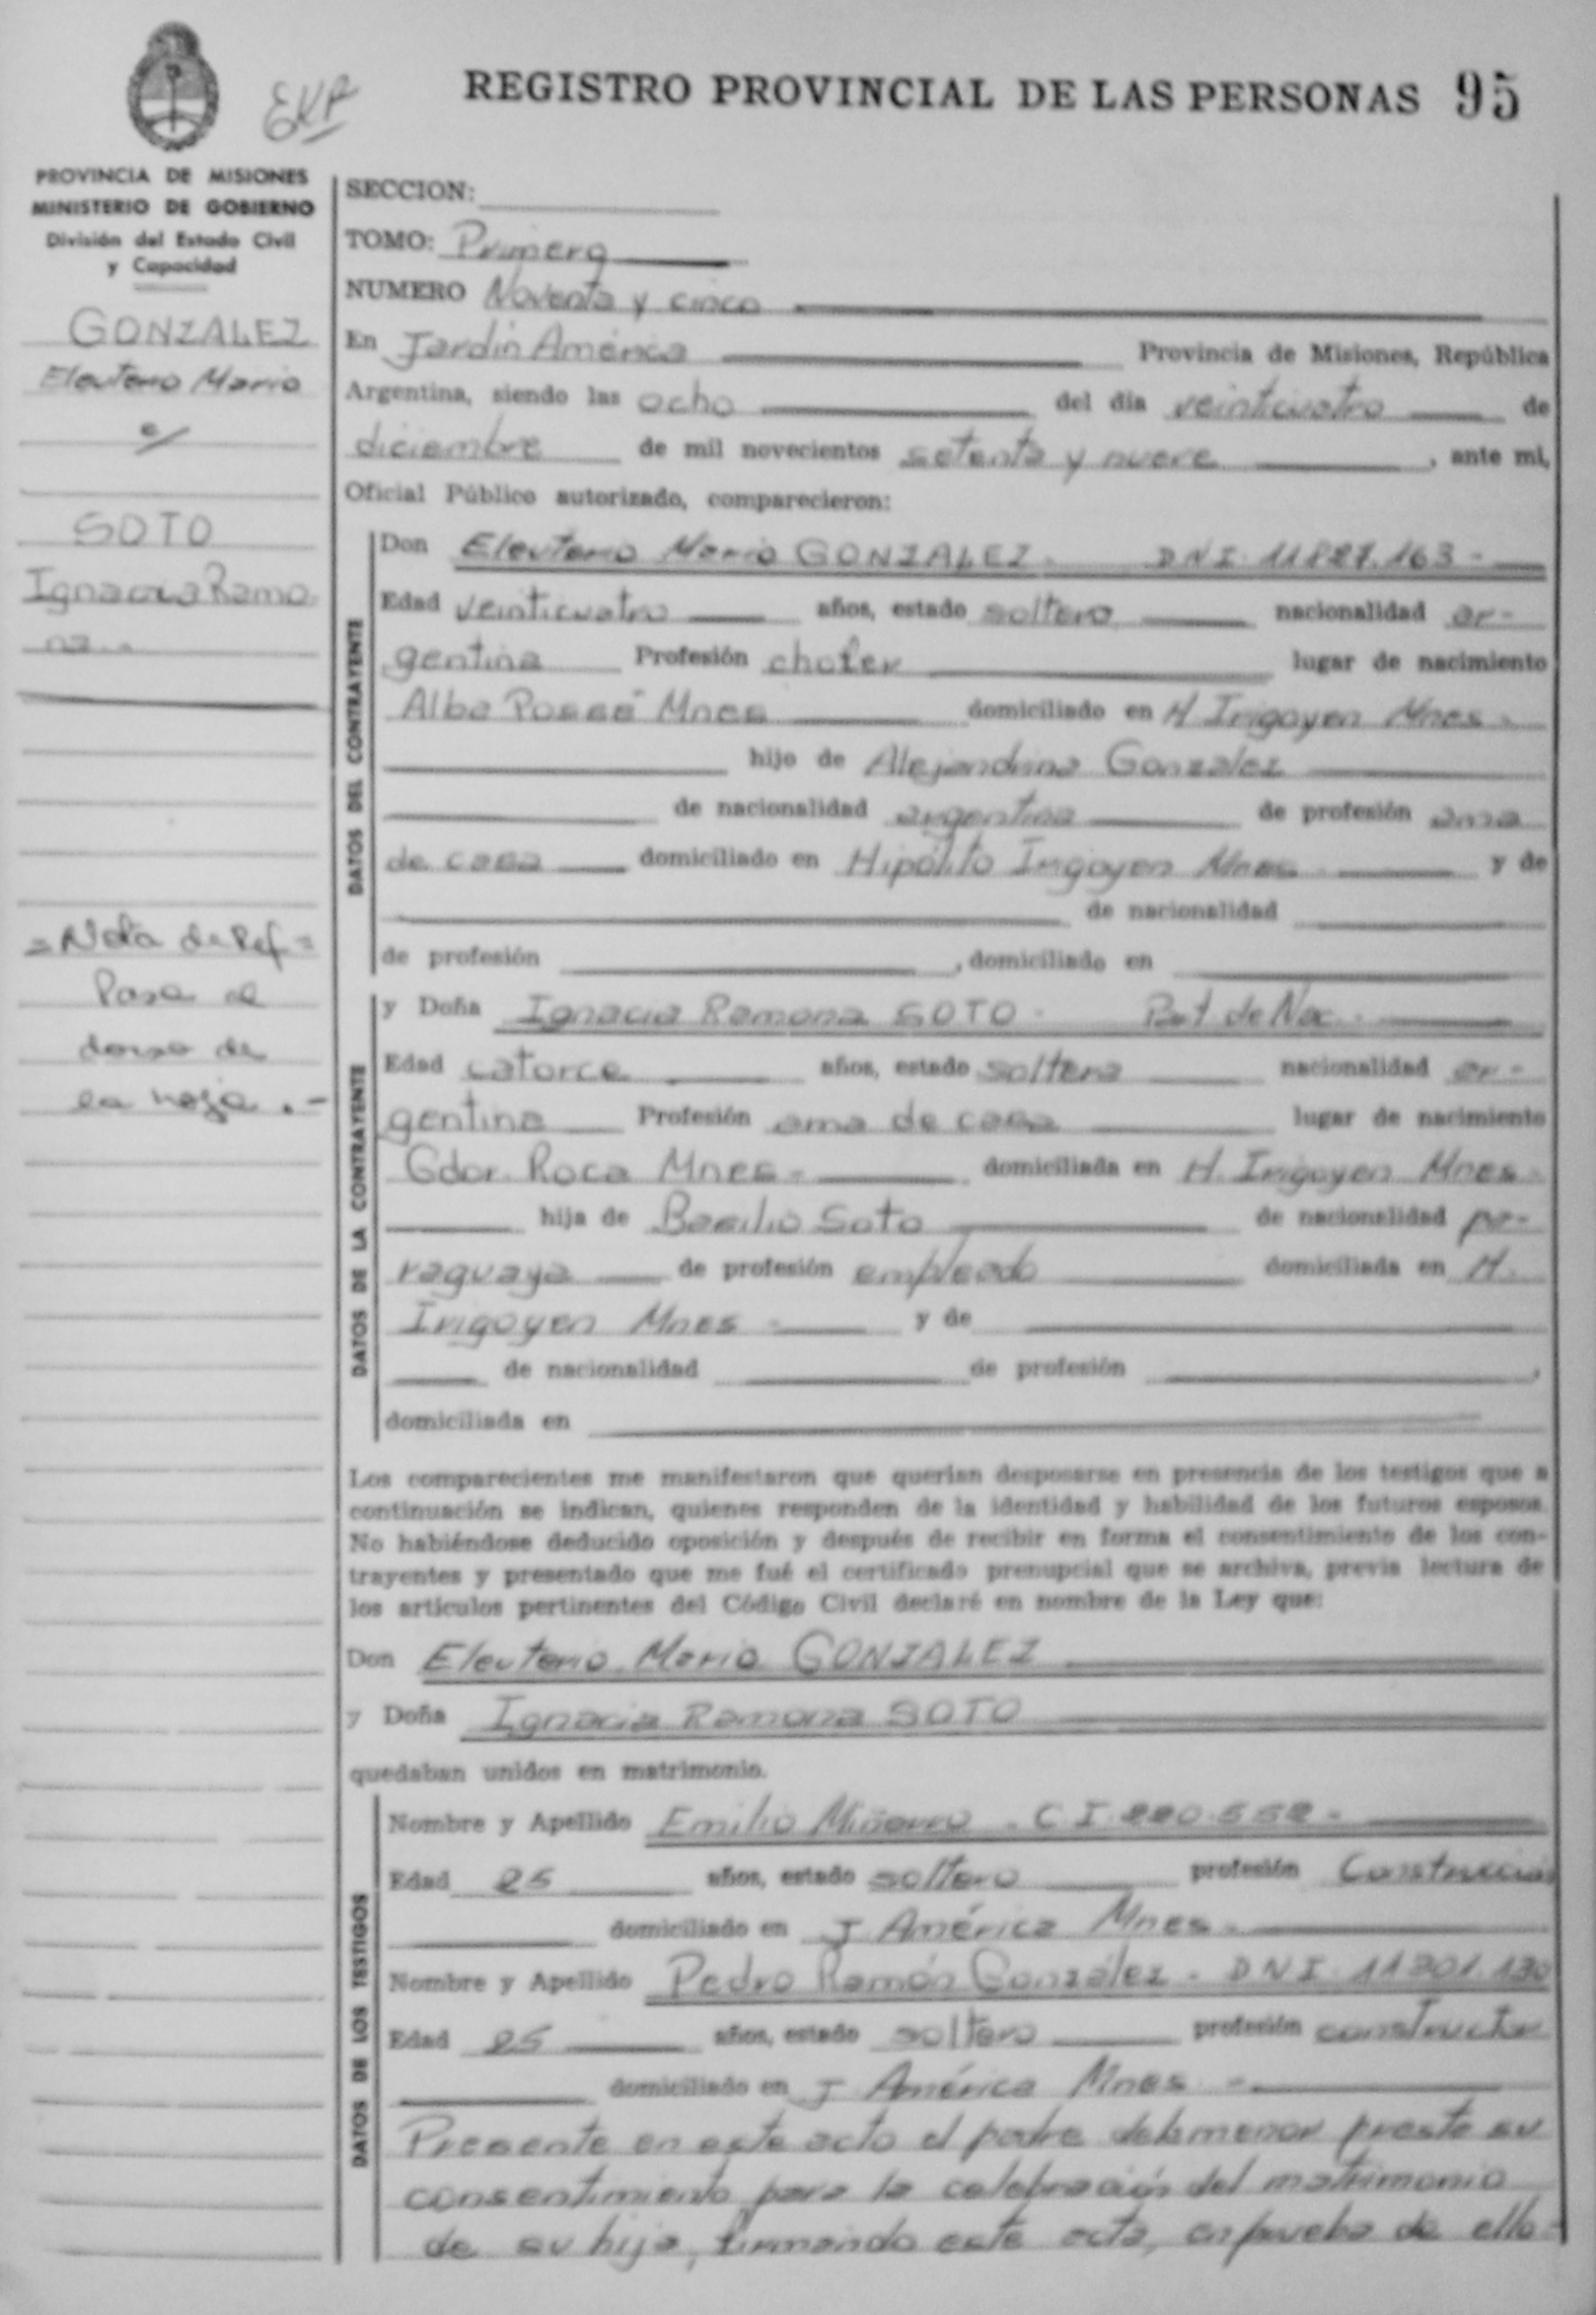 REGISTRO PROVINCIAL DE LAS PERSONAS 95
PROVINCIA DE MISIONES
MINISTERIO DE GOBIERNO
División del Estado Civil
y Capacidad
GONZALEZ
Eleuterio Mario
c/
SOTO
Ignacia Ramo
na..
= Nota de Ref =
Pasa al
dorso de
la hoja .-
SECCION:
TOMO: Primero
NUMERO Noventa y cinco
En Jardín América Provincia de Misiones, República
Argentina, siendo las ocho del día veinticuatro de
diciembre de mil novecientos setenta y nueve, ante mi,
Oficial Público autorizado, comparecieron:
DATOS DEL CONTRAYENTE
Don Eleuterio Mario GONZALEZ. DNI 11.827.163 -
Edad veinticuatro años, estado soltero nacionalidad ar-
gentina Profesión chofer lugar de nacimiento
Alba Posse Mnes domiciliado en H. Irigoyen Mnes.
hijo de Alejandrina Gonzalez
de nacionalidad argentina de profesión ama
de casa domiciliado en Hipólito Irigoyen Mnes y de
de nacionalidad
de profesión , domiciliado en
DATOS DE LA CONTRAYENTE
y Doña Ignacia Ramona SOTO - Part de Nac.
Edad catorce años, estado soltera nacionalidad ar-
gentina Profesión ama de casa lugar de nacimiento
Gdor. Roca Mnes - domiciliada en H. Irigoyen Mnes -
hija de Basilio Soto de nacionalidad pa-
raguaya de profesión empleado domiciliada en H.
Irigoyen Mnes - y de
de nacionalidad de profesión ,
domiciliada en
Los comparecientes me manifestaron que querían desposarse en presencia de los testigos que a
continuación se indican, quienes responden de la identidad y habilidad de los futuros esposos.
No habiéndose deducido oposición y después de recibir en forma el consentimiento de los con-
trayentes y presentado que me fué el certificado prenupcial que se archiva, previa lectura de
los artículos pertinentes del Código Civil declaré en nombre de la Ley que:
Don Eleuterio Mario GONZALEZ
y Doña Ignacia Ramona SOTO
quedaban unidos en matrimonio.
DATOS DE LOS TESTIGOS
Nombre y Apellido Emilio - C I. 220.552 -
Edad 25 años, estado soltero profesión
domiciliado en J América Mnes -
Nombre y Apellido Pedro Ramón González - DNI 11301.130
Edad 25 años, estado soltero profesión constructor
domiciliado en J América Mnes -
Presente en este acto el padre de la menor presta su
consentimiento para la celebración del matrimonio
de su hija, firmando este acta, en prueba de ello -